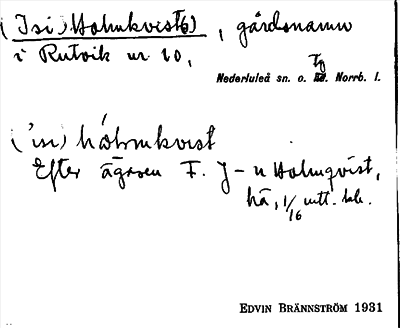 (Isi) Holmkvist(s), gårdsnamn
i Rutvik nr 10,
Nederluleå sn. o. tg Norrb. l.
('isi) hólmkvist
Efter ägaren F. J-n Holmqvist,
hä, 1/16 mtl. skr.
EDVIN BRÄNNSTRÖM 1931